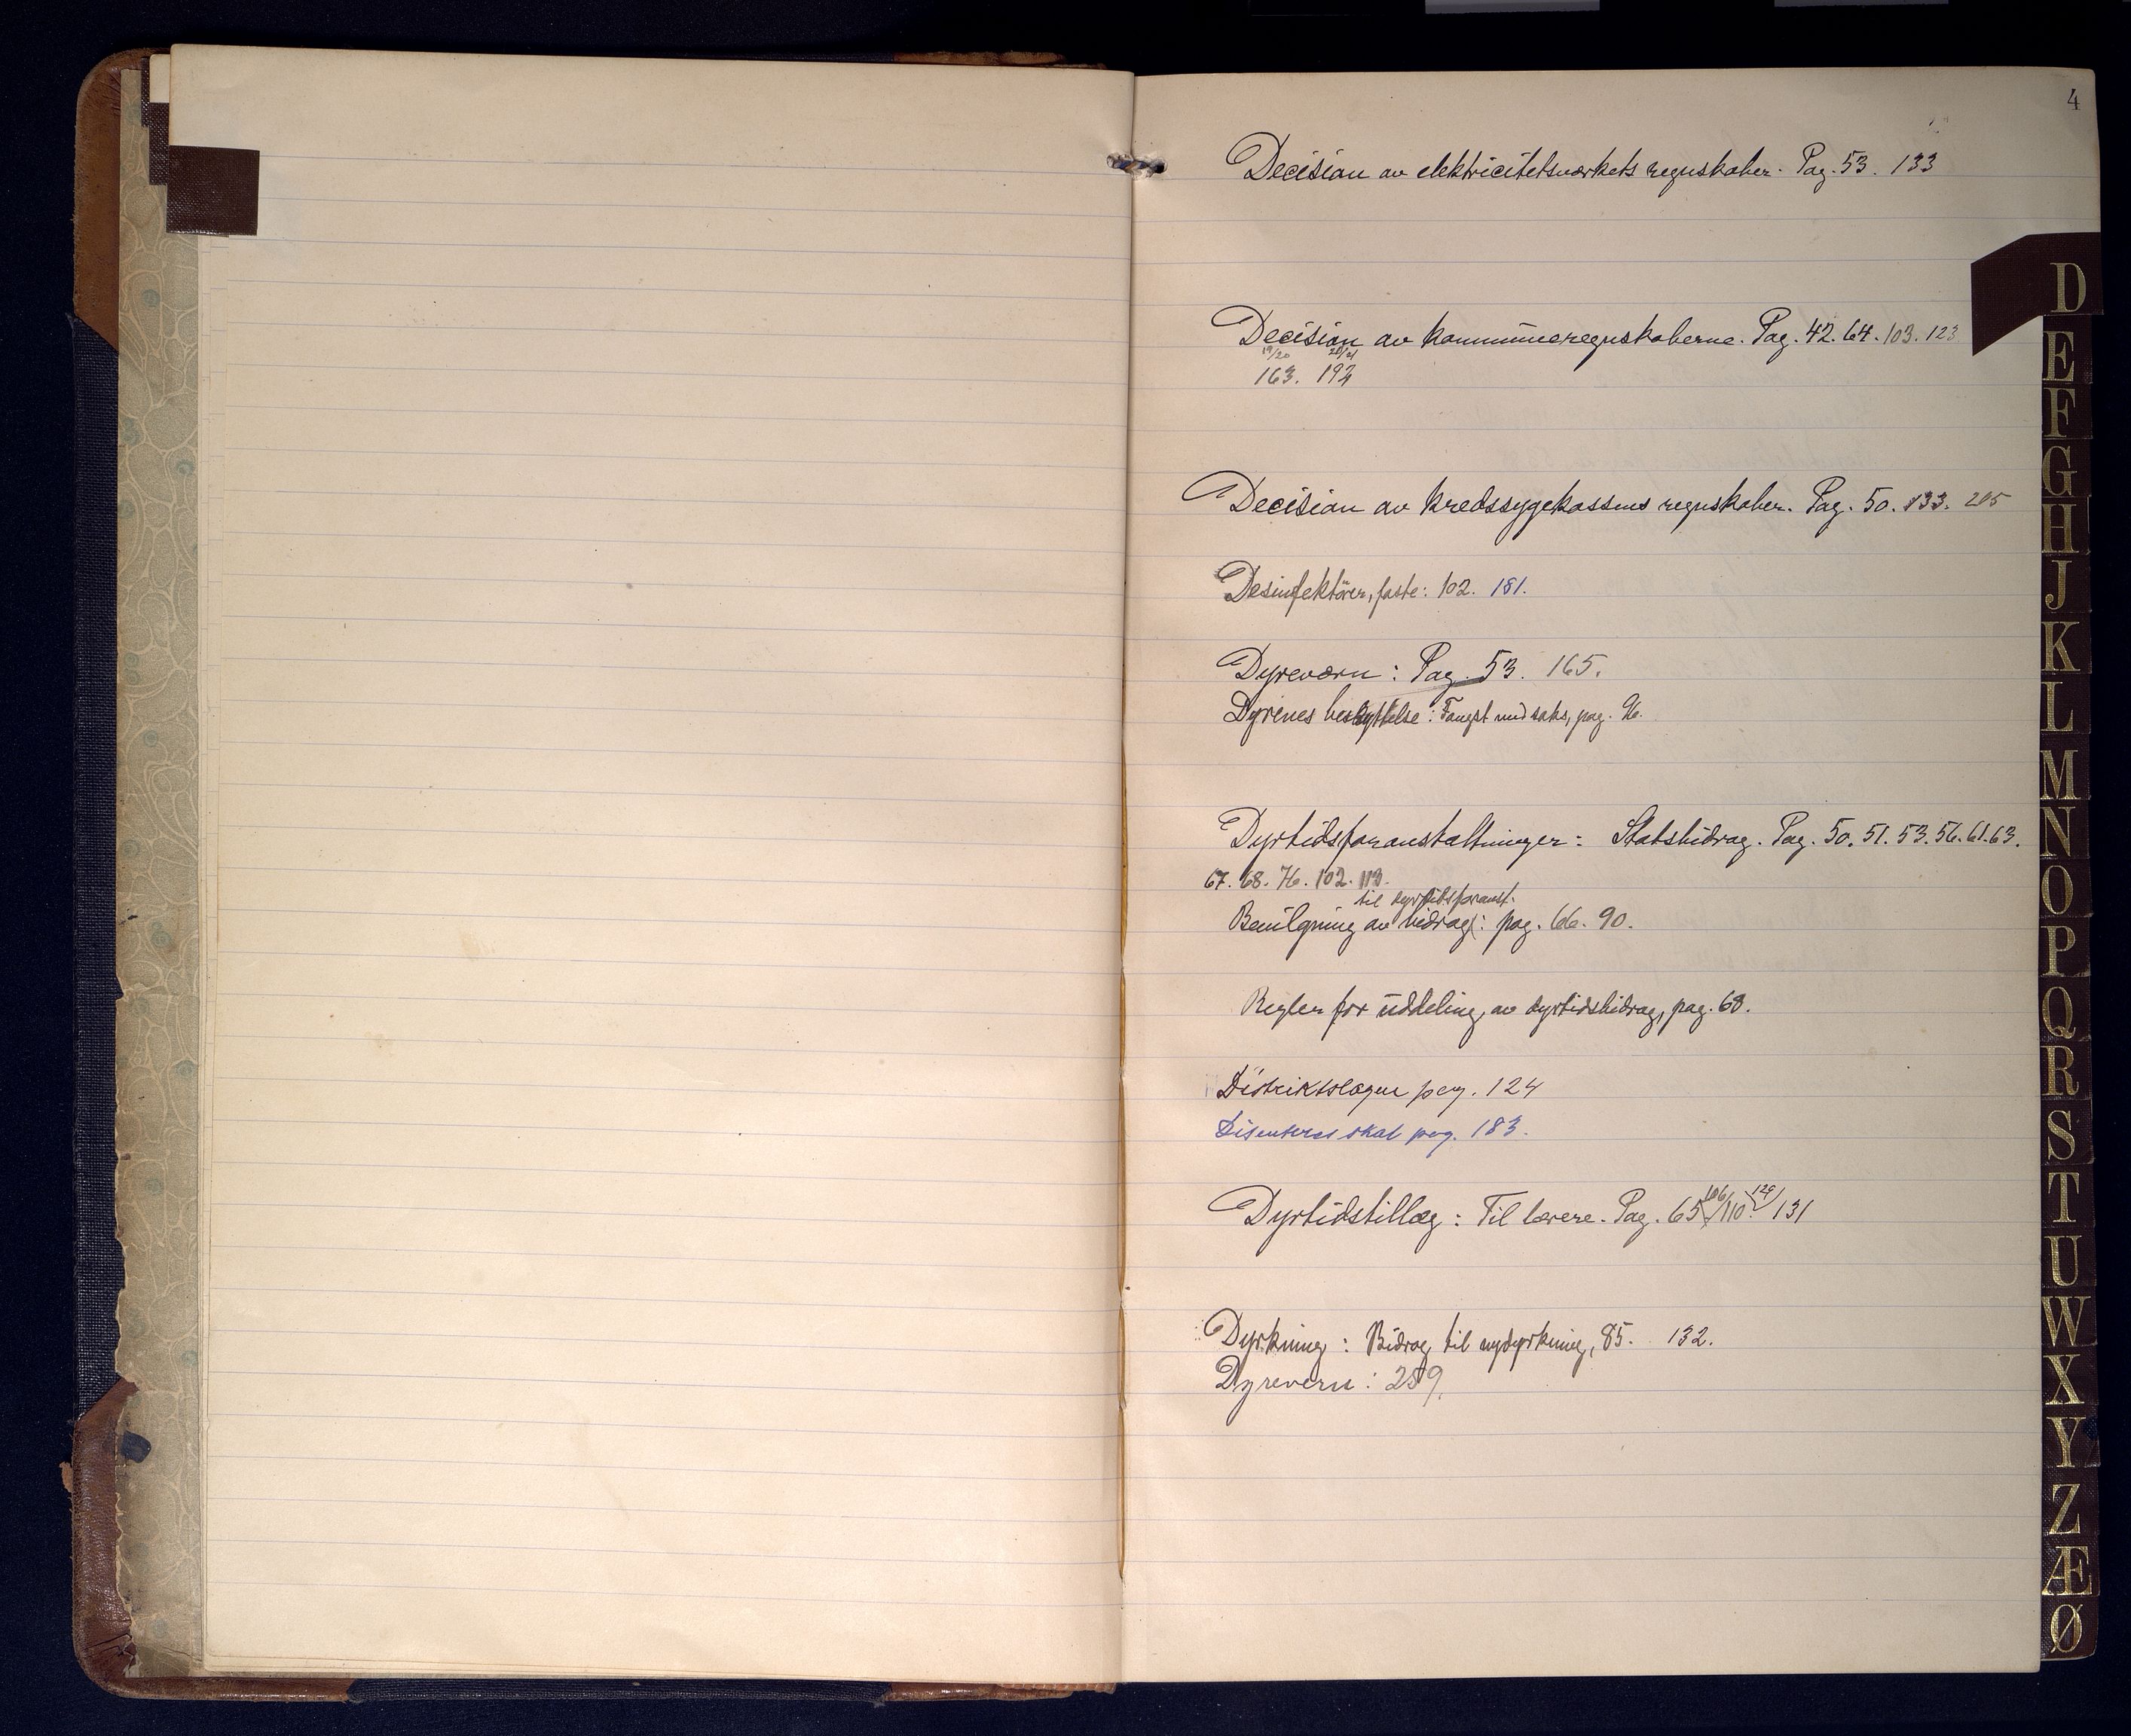 4
Decision av elektricitetsværkets regnskaber. Pag. 53. 133
Decision av kommuneregnskaberne. Pag. 42. 64. 103. 123
19/20 20/21
163. 192
Decision av kredssygekassens regnskaber. Pag. 50. 133. 205
Desinfektörer, faste: 102. 181.
Dyreværn: Pag. 53. 165.
Dyrenes beskyttelse: Fangst med saks, pag. 96.
Dyrtidsforanstaltninger: Statsbidrag. Pag. 50. 51. 53. 56. 61. 63.
67. 68. 76. 102. 113.
til dyrtidsforanst.
Bevilgning av bidrag: pag. 66. 90.
Regler for uddeling av dyrtidsbidrag, pag. 68.
Distriktslægen pag. 124
Disenteres skat pag. 183.
Dyrtidstillæg: Til lærere. Pag. 65 106/110. 129/131
Dyrkning: Bidrag til nydyrkning, 85. 132.
Dyrevern: 259.
D
E
F
G
H
J
K
L
M
N
O
P
Q
R
S
T
U
W
X
Y
Z
Æ
Ø